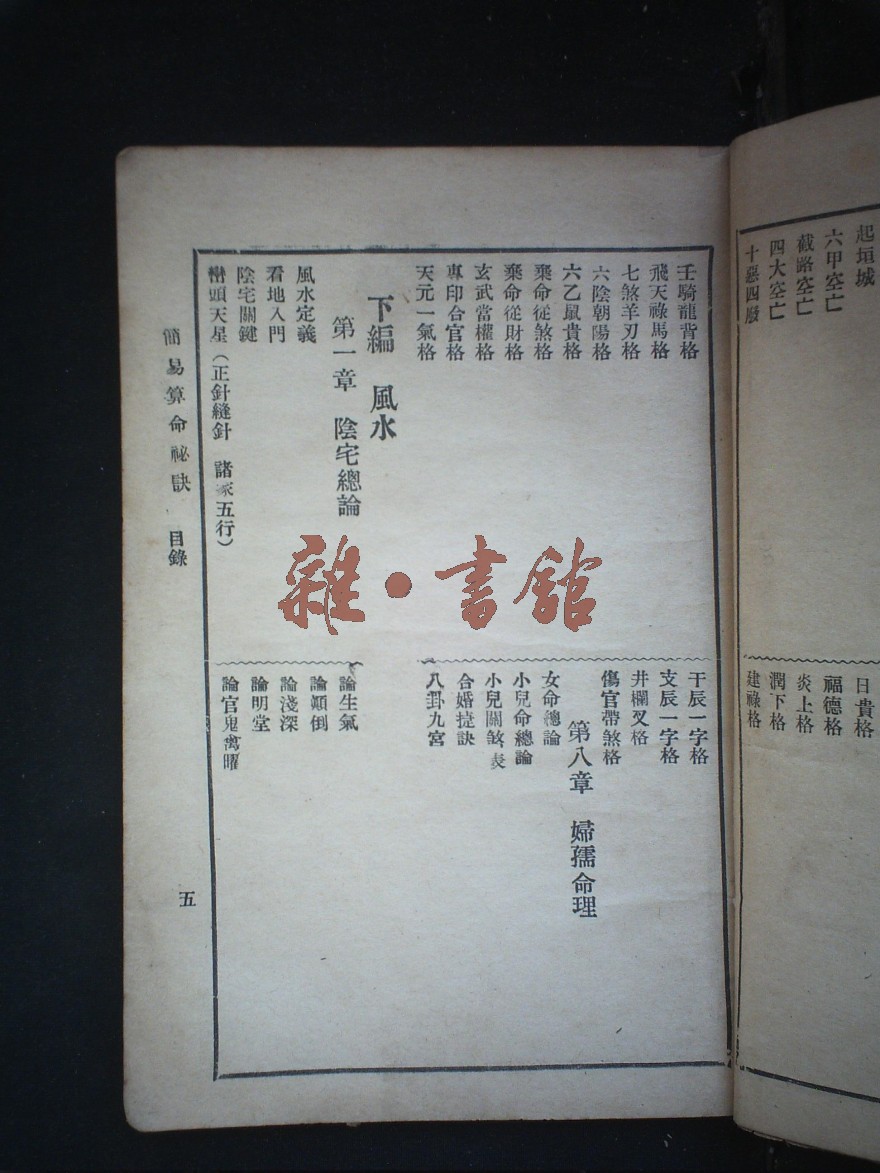 起垣城
六甲空亡
截路空亡
四大空亡
十惡四廢
日貴格
福德格
炎上格
潤下格
建祿格
壬騎龍背格
飛天祿馬格
七煞羊刃格
六陰朝陽格
六乙鼠貴格
棄命從煞格
棄命從財格
玄武當權格
專印合官格
天元一氣格
干辰一字格
支辰一字格
井欄叉格
傷官帶煞格
第八章 婦孺命理
女命總論
小兒命總論
小兒關煞表
合婚捷訣
八卦九宮
下編 風水
第一章 陰宅總論
風水定義
看地入門
陰宅關鍵
巒頭天星（正針縫針 諸家五行）
論生氣
論顛倒
論淺深
論明堂
論官鬼禽曜
簡易算命祕訣 目錄
五
雜·書館